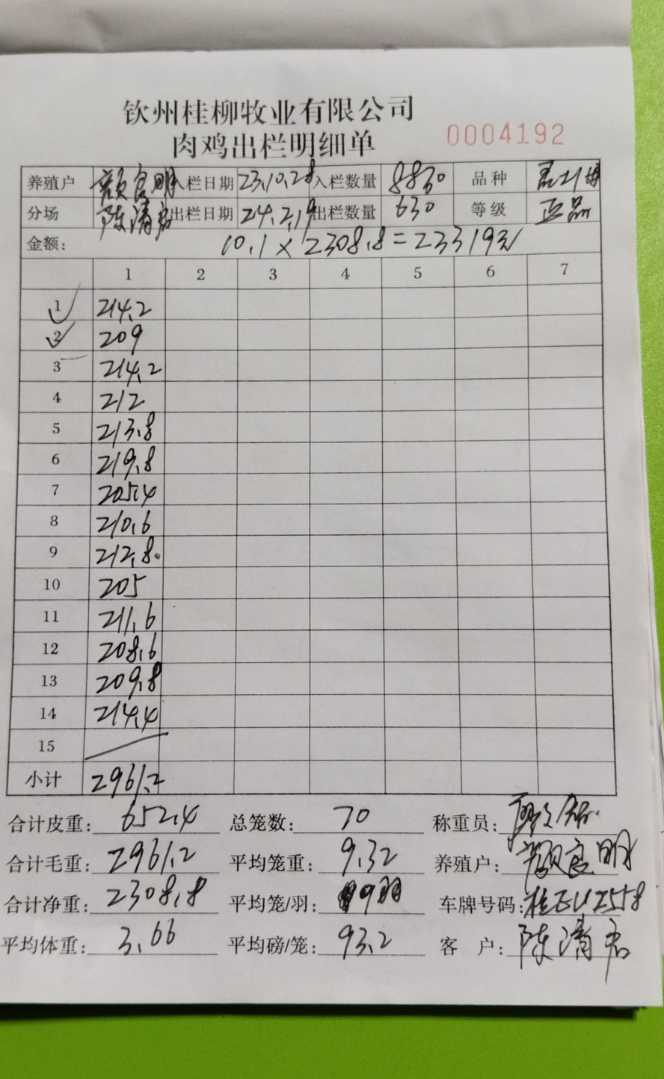 钦州桂柳牧业有限公司
肉鸡出栏明细单 0004192
养殖户 颜良明 入栏日期 23.10.28 入栏数量 8830 品种
分场 陈清名 出栏日期 24.2.19 出栏数量 630 等级 正品
金额: 10.1×2308.8=23319元
1 2 3 4 5 6 7
1 214.2
2 209
3 214.2
4 212
5 213.8
6 219.8
7 205.4
8 210.6
9 212.8
10 205
11 211.6
12 208.6
13 209.8
14 214.4
15
小计 2961.2
合计皮重: 652.4 总笼数: 70 称重员:
合计毛重: 2961.2 平均笼重: 9.32 养殖户: 颜良明
合计净重: 2308.8 平均笼/羽: 9羽 车牌号码:
平均体重: 3.66 平均磅/笼: 93.2 客 户: 陈清名